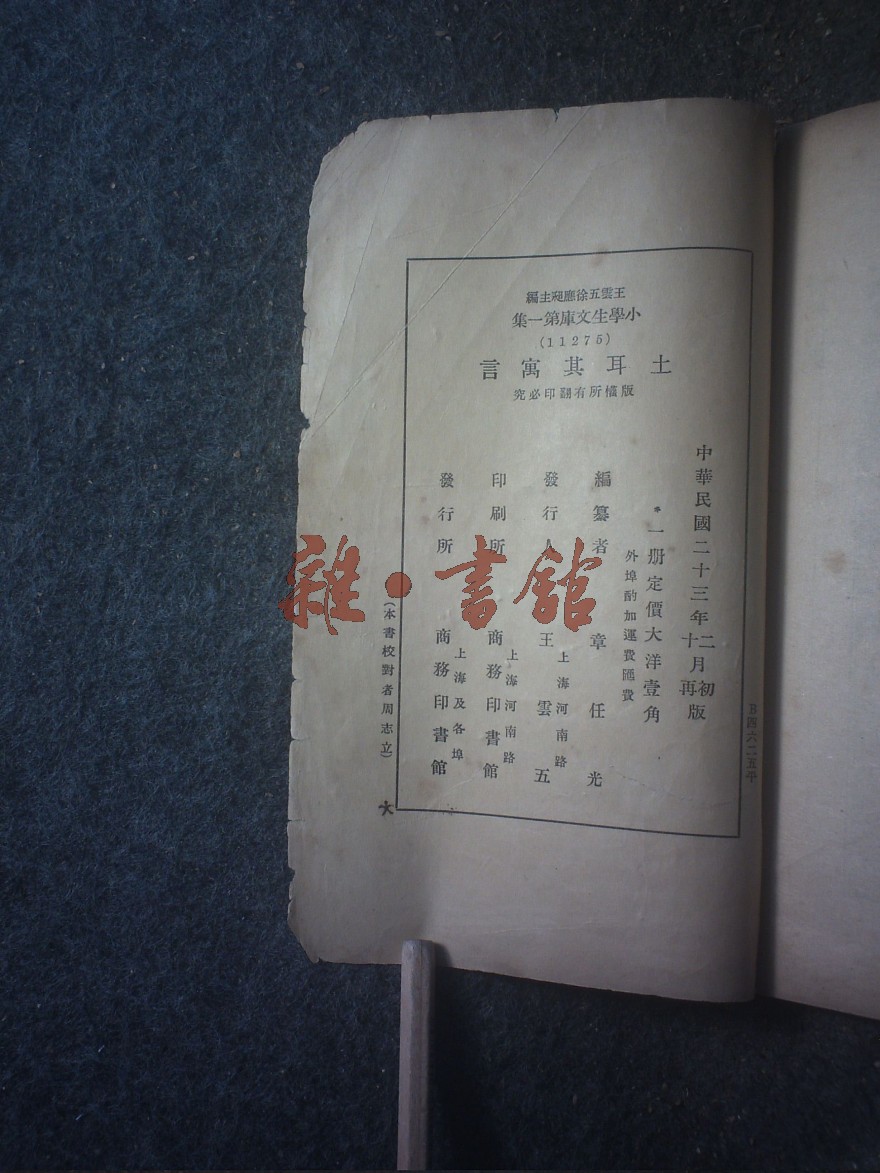 王雲五徐應昶主編
小學生文庫第一集
(11275)
土耳其寓言
版權所有翻印必究
中華民國二十三年二月初版
十月再版
*一册定價大洋壹角
外埠酌加運費匯費
編纂者 章任光
發行人 王雲五
上海河南路
印刷所 商務印書館
上海河南路
發行所 商務印書館
上海及各埠
(本書校對者周志立)
B四六二五平
大
雜·書館